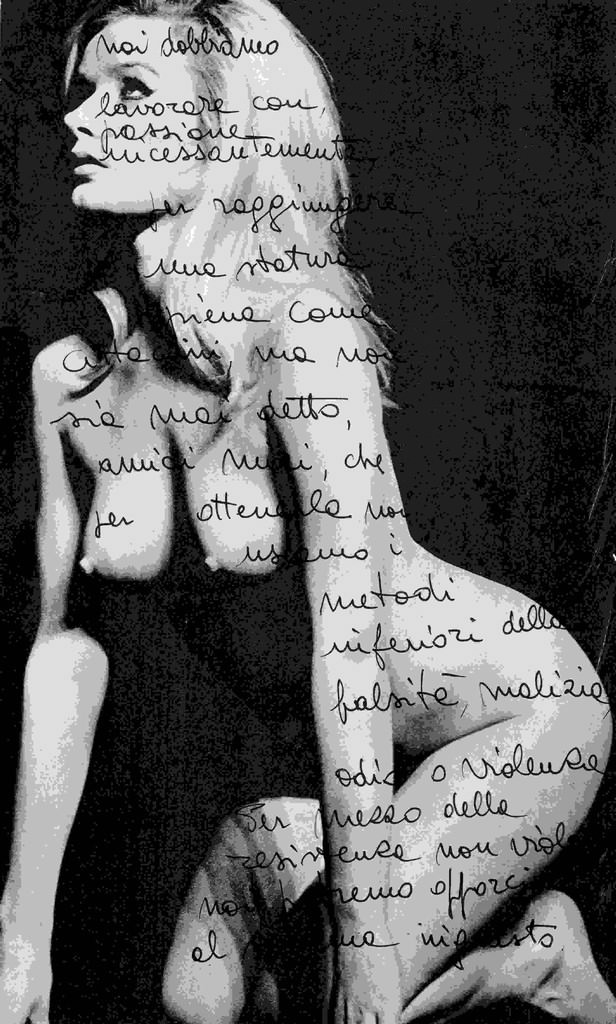 noi dobbiamo
lavorare con,
passione
incessantemente,
per raggiungere
una statura
piena come
cittadini, ma non
sia mai detto,
amici miei, che
per ottenerla noi
usiamo i
metodi
inferiori della
falsità, malizia
odio o violenza
Per mezzo della
resistenza non viol
noi potremo opporci
al sistema ingiusto